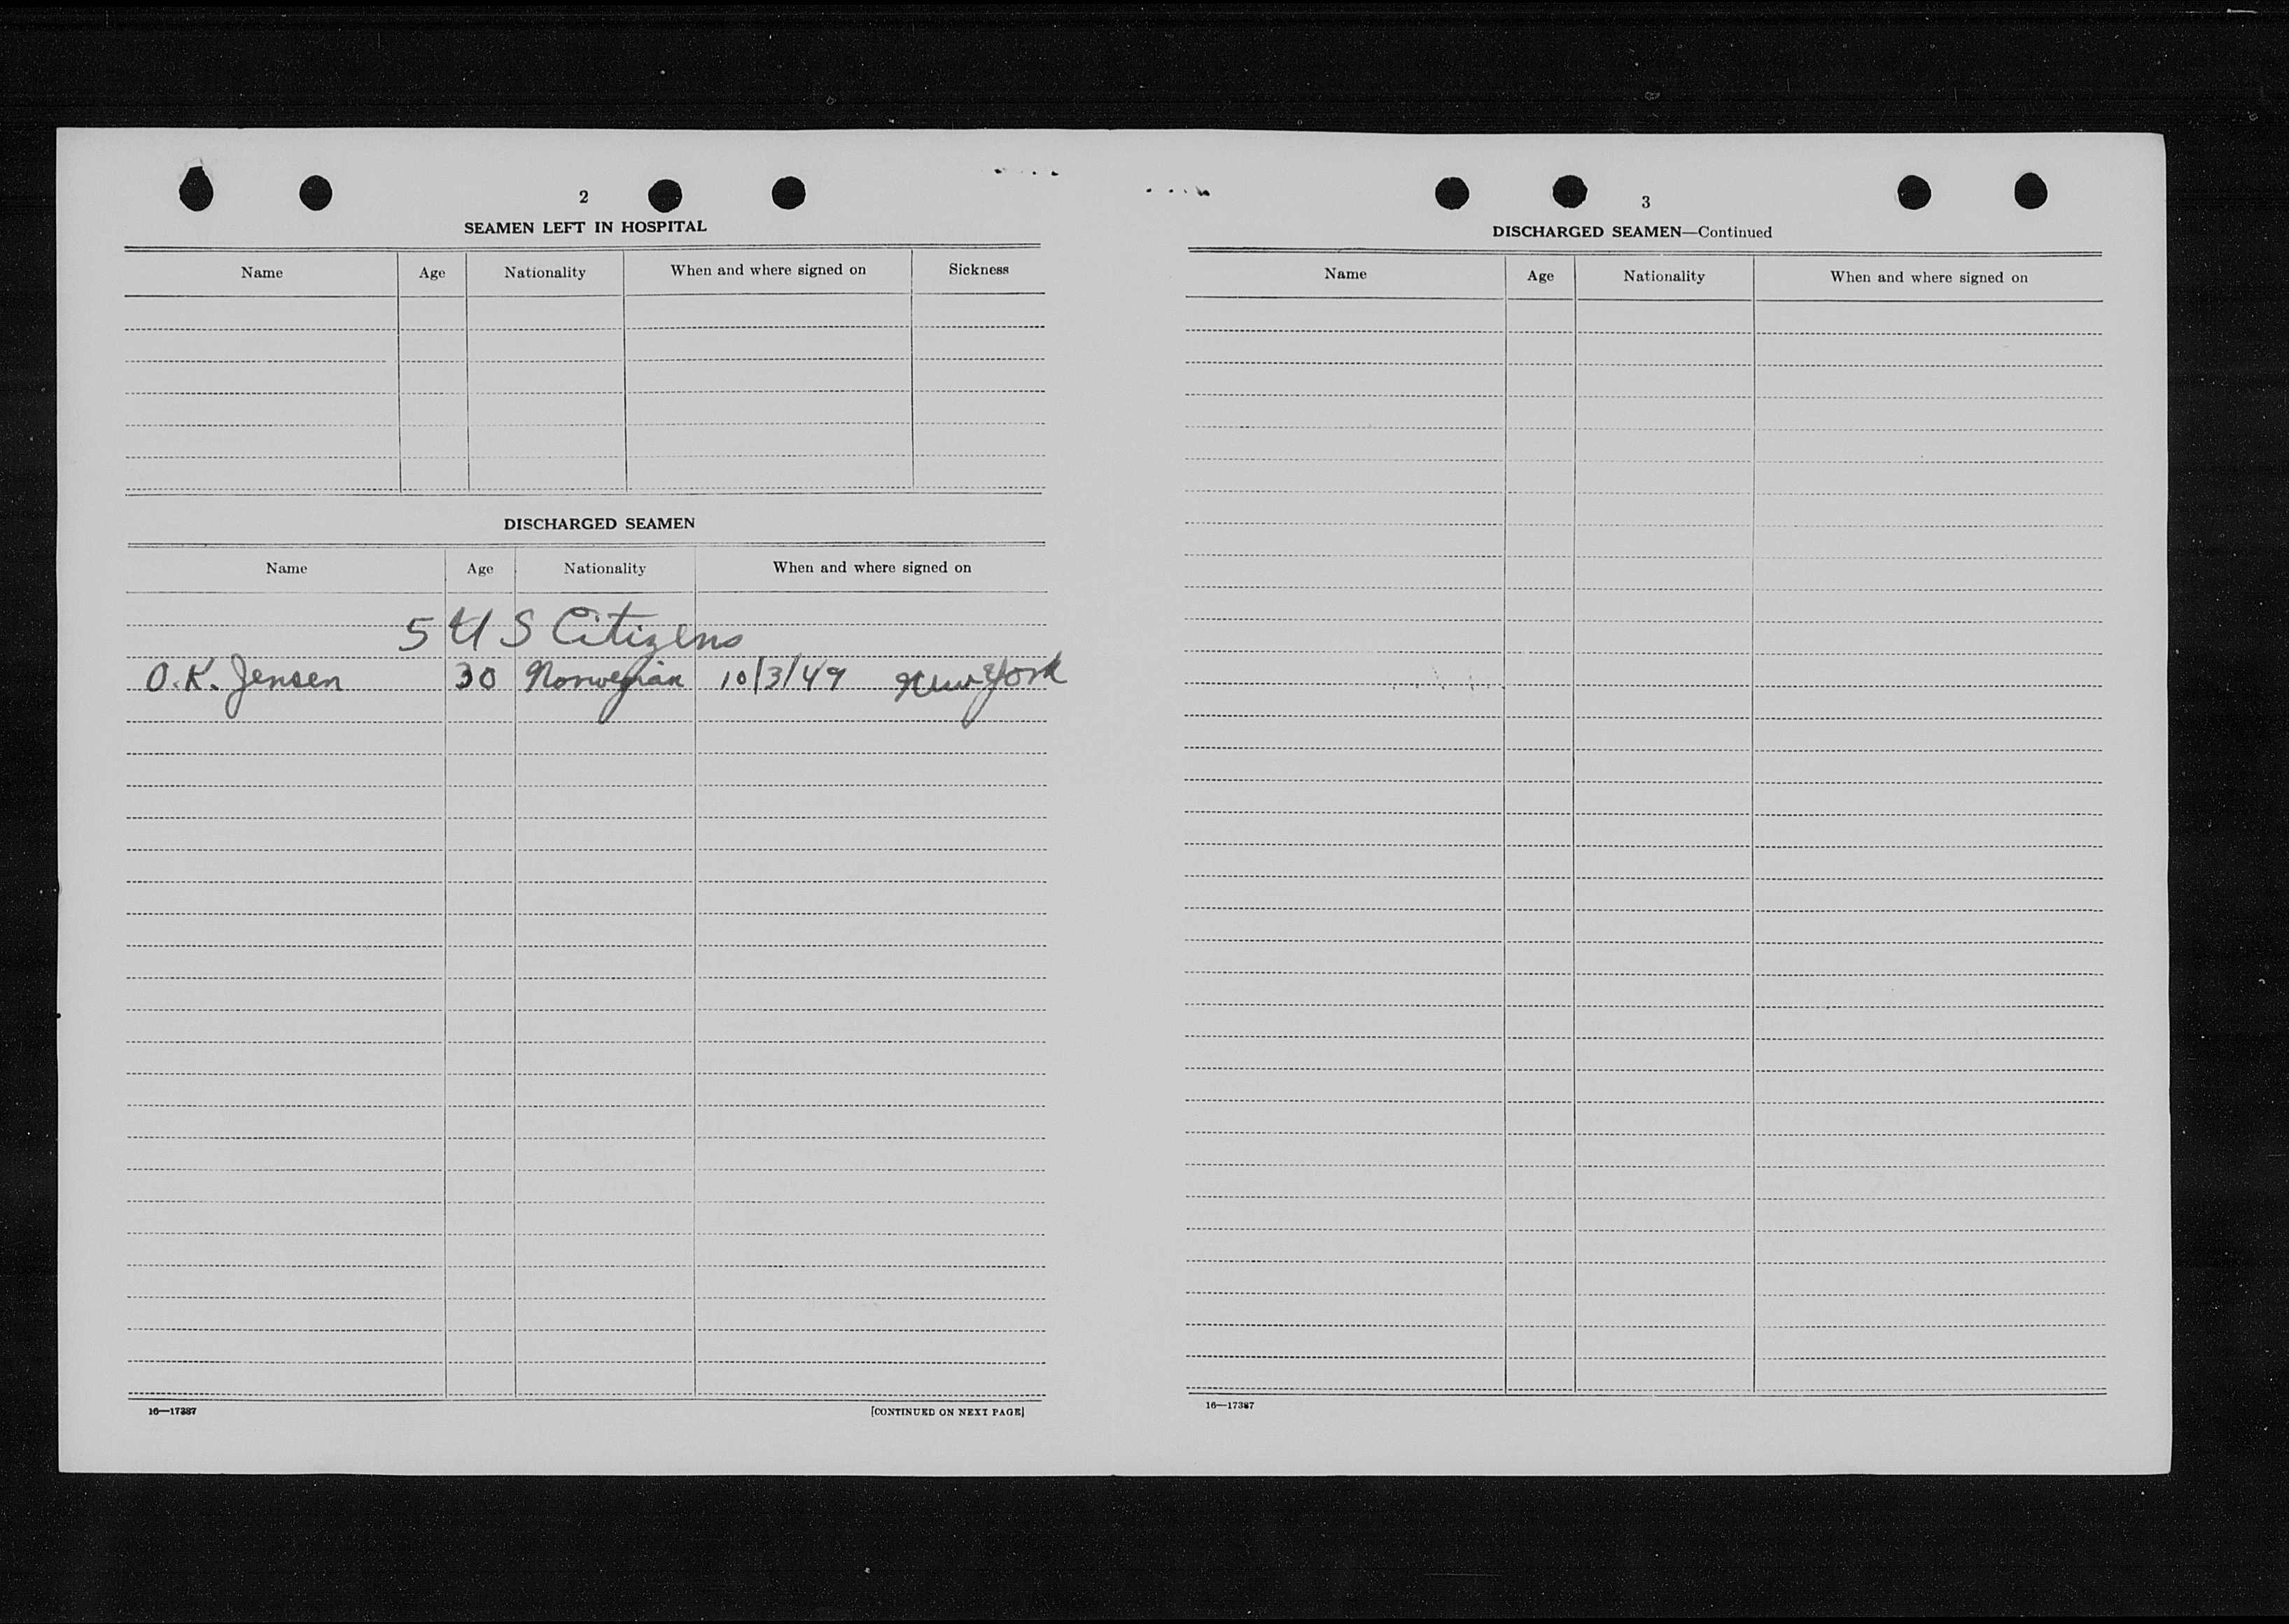 2
SEAMEN LEFT IN HOSPITAL
Name Age Nationality When and where signed on Sickness
DISCHARGED SEAMEN
Name Age Nationality When and where signed on
5 U S Citizens
O.K. Jensen 30 Norwegian 10/3/49 New York
16—17387 [CONTINUED ON NEXT PAGE]
3
DISCHARGED SEAMEN—Continued
Name Age Nationality When and where signed on
16—17387